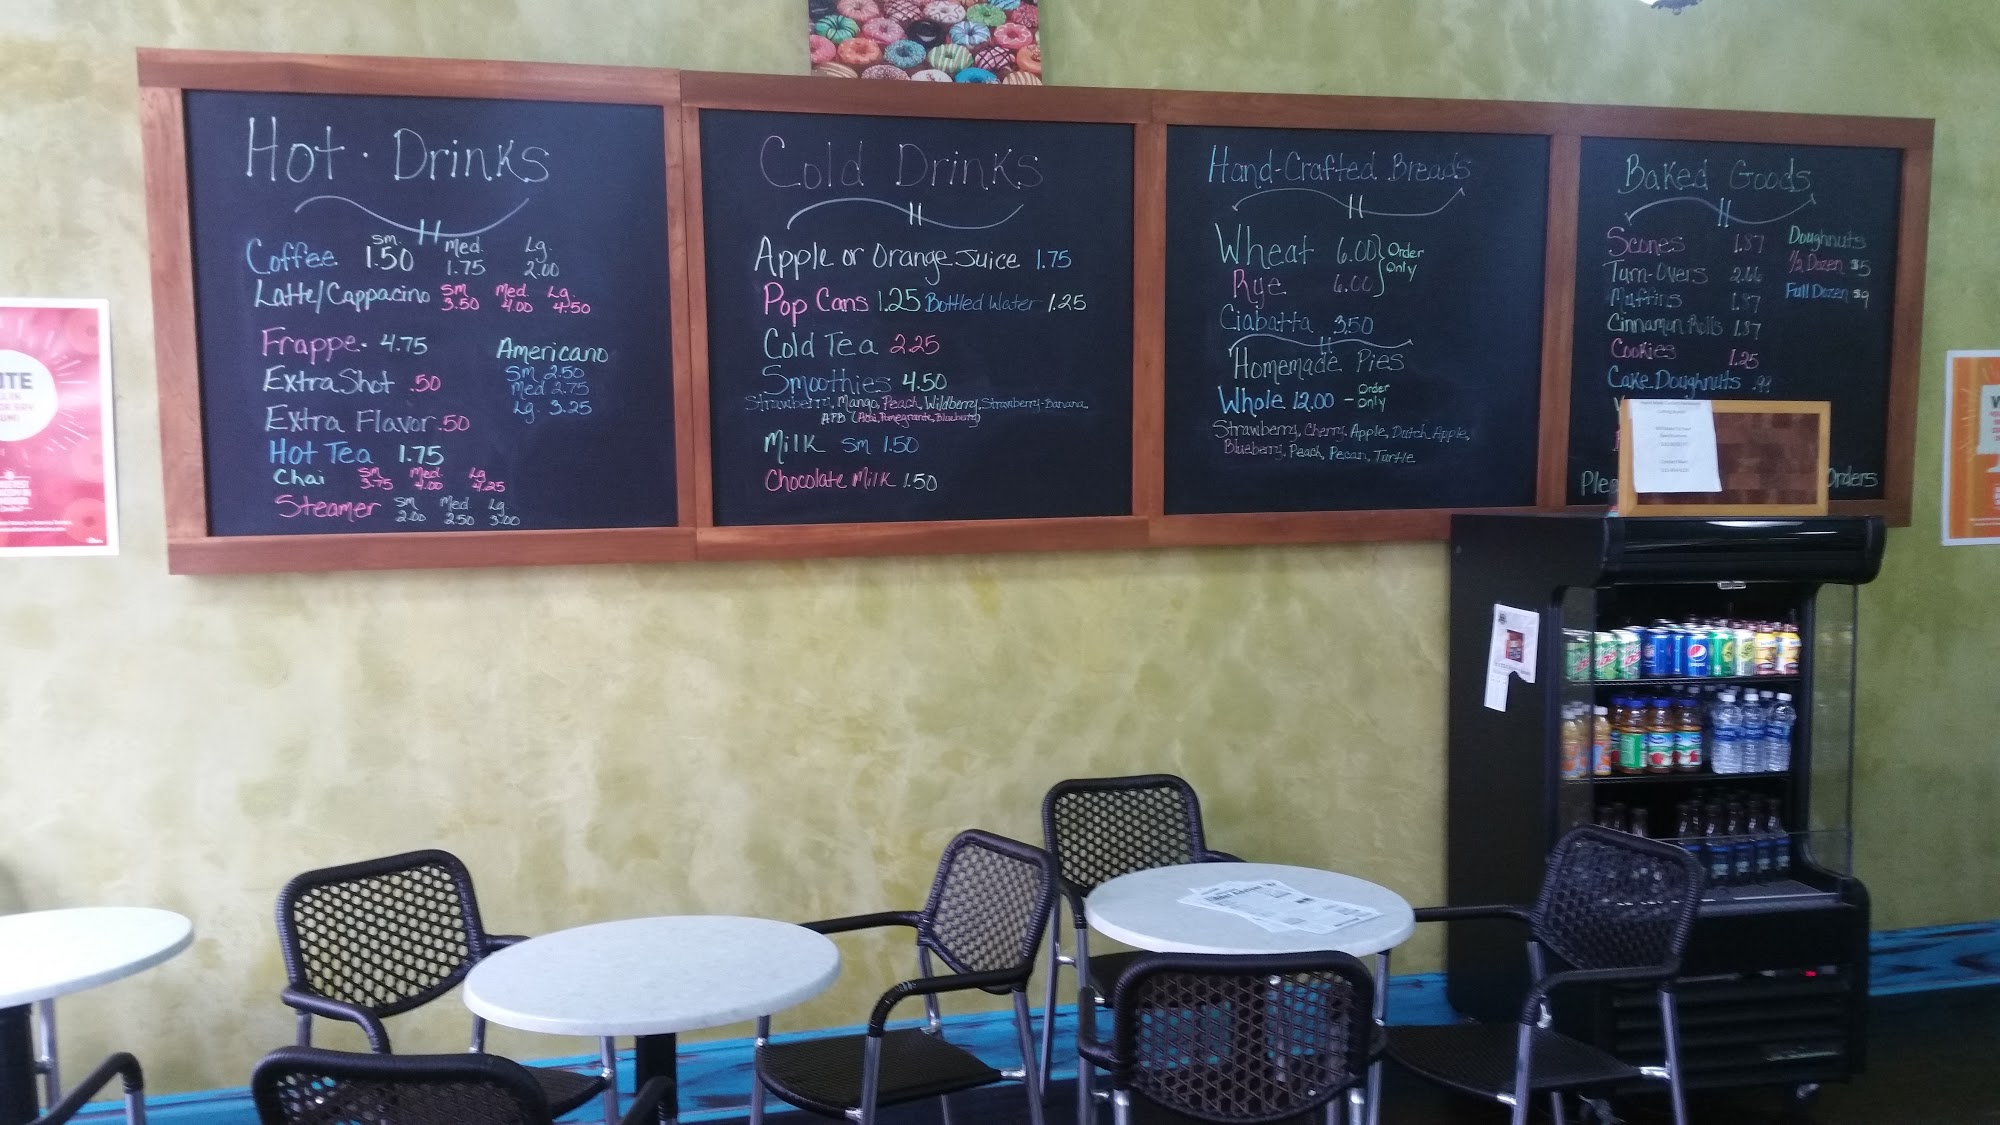 Hot · Drinks
Coffee sm. 1.50 Med. 1.75 Lg. 2.00
Latte/Cappacino sm 3.50 Med. 4.00 Lg 4.50
Frappe. 4.75
Extra Shot .50
Extra Flavor .50
Hot Tea 1.75
Chai sm 3.75 Med. 4.00 Lg 4.25
Steamer sm 2.00 Med 2.50 Lg 3.00
Americano
Sm 2.50
Med 2.75
Lg 3.25
Cold Drinks
Apple or Orange Juice 1.75
Pop Cans 1.25 Bottled Water 1.25
Cold Tea 2.25
Smoothies 4.50
Strawberry, Mango, Peach, Wildberry, Strawberry-Banana,
APB (Acai, Pomegranate, Blueberry)
Milk Sm 1.50
Chocolate Milk 1.50
Hand-Crafted Breads
Wheat 6.00
Rye 6.00
Order
Only
Ciabatta 3.50
Homemade Pies
Whole 12.00 - Order
only
Strawberry, Cherry, Apple, Dutch Apple,
Blueberry, Peach, Pecan, Turtle
Baked Goods
Scones 1.87
Turn-Overs 2.66
Muffins 1.87
Cinnamon Rolls 1.87
Cookies 1.25
Cake Doughnuts .99
Doughnuts
1/2 Dozen $5
Full Dozen $9
Orders
pepsi